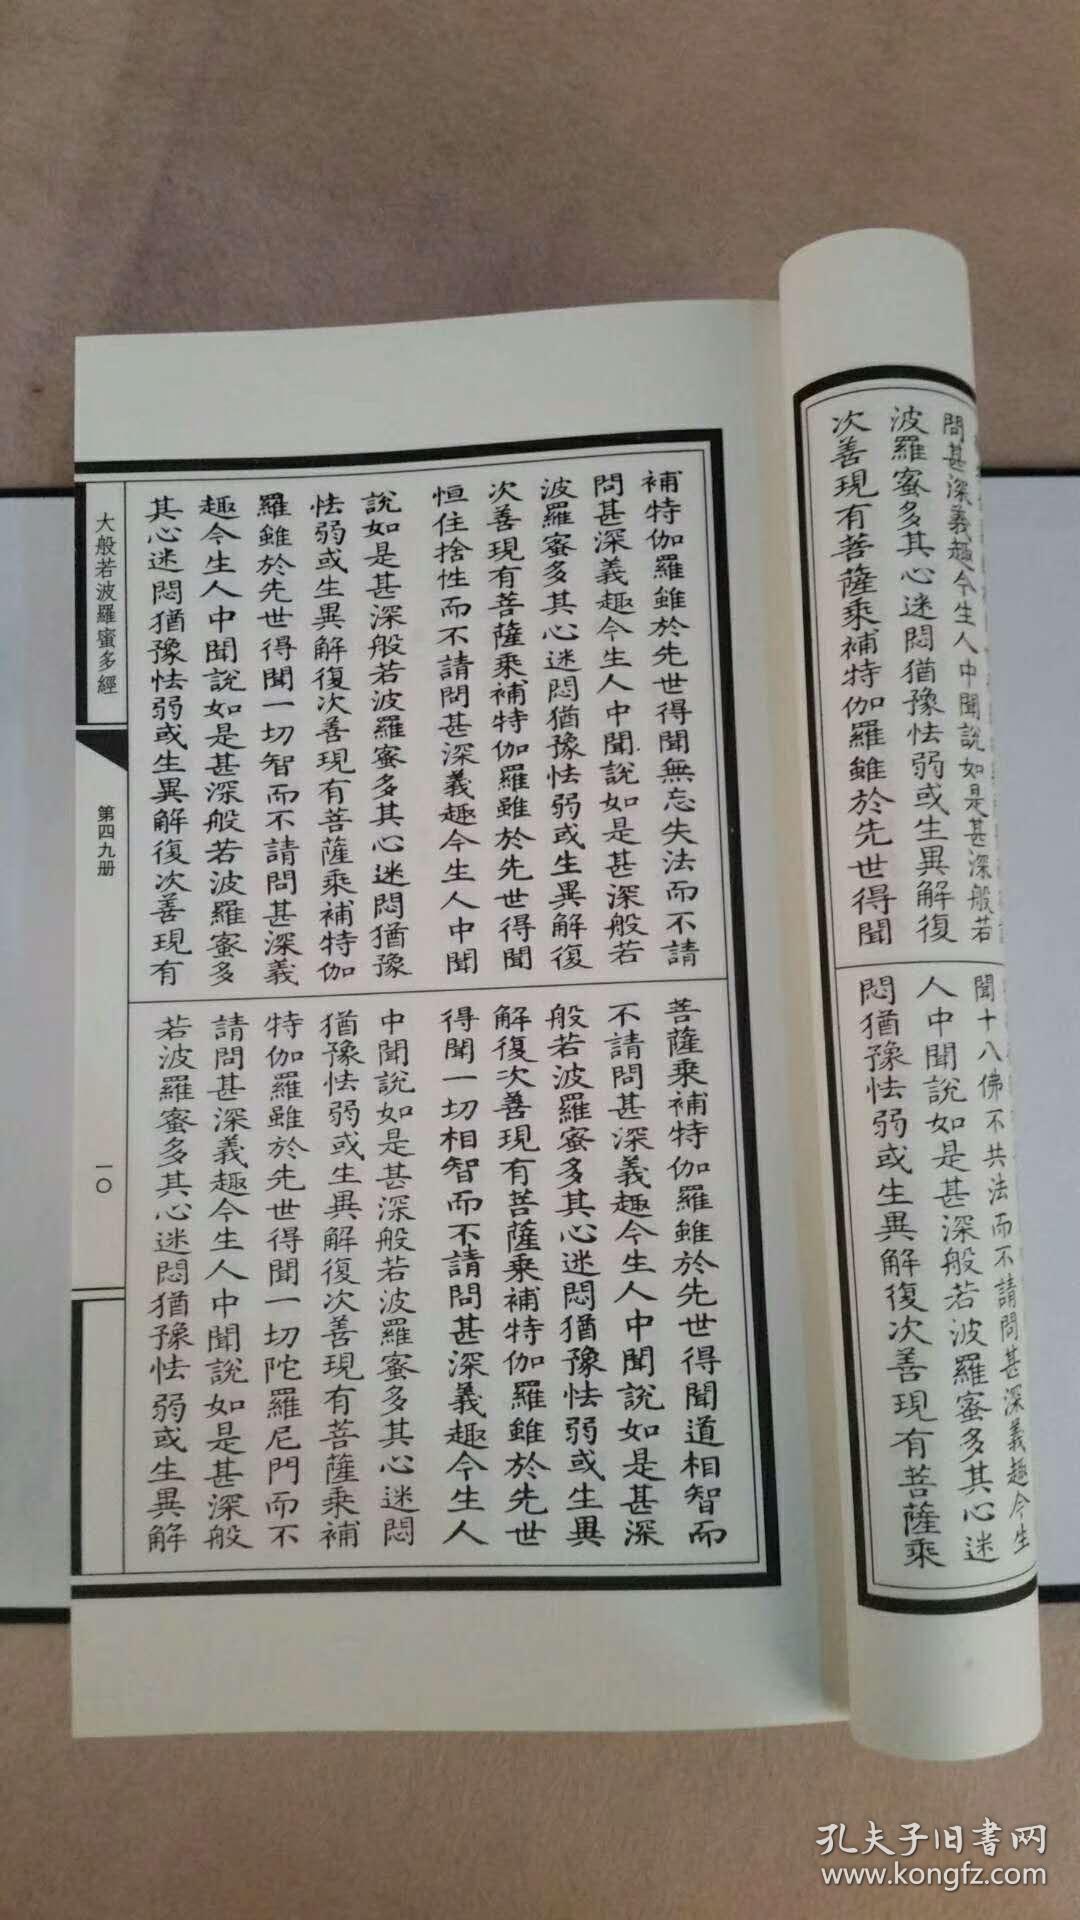 問甚深義趣今生人中聞說如是甚深般若
波羅蜜多其心迷悶猶豫怯弱或生異解復
次善現有菩薩乘補特伽羅雖於先世得聞
聞十八佛不共法而不請問甚深義趣今生
人中聞說如是甚深般若波羅蜜多其心迷
悶猶豫怯弱或生異解復次善現有菩薩乘
補特伽羅雖於先世得聞無忘失法而不請
問甚深義趣今生人中聞說如是甚深般若
波羅蜜多其心迷悶猶豫怯弱或生異解復
次善現有菩薩乘補特伽羅雖於先世得聞
恒住捨性而不請問甚深義趣今生人中聞
說如是甚深般若波羅蜜多其心迷悶猶豫
怯弱或生異解復次善現有菩薩乘補特伽
羅雖於先世得聞一切智而不請問甚深義
趣今生人中聞說如是甚深般若波羅蜜多
其心迷悶猶豫怯弱或生異解復次善現有
菩薩乘補特伽羅雖於先世得聞道相智而
不請問甚深義趣今生人中聞說如是甚深
般若波羅蜜多其心迷悶猶豫怯弱或生異
解復次善現有菩薩乘補特伽羅雖於先世
得聞一切相智而不請問甚深義趣今生人
中聞說如是甚深般若波羅蜜多其心迷悶
猶豫怯弱或生異解復次善現有菩薩乘補
特伽羅雖於先世得聞一切陀羅尼門而不
請問甚深義趣今生人中聞說如是甚深般
若波羅蜜多其心迷悶猶豫怯弱或生異解
大般若波羅蜜多經
第四九册
一〇
孔夫子旧書网
www.kongfz.com